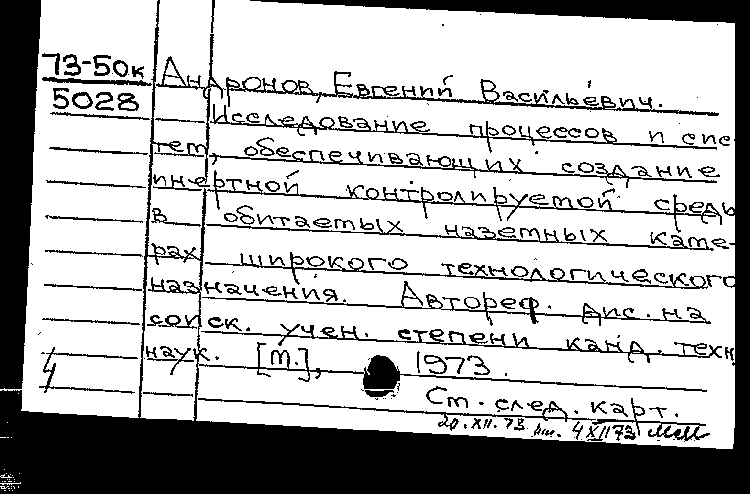 73-50к Андронов, Евгений Васильевич.
5028 Исследование процессов и сис-
тем, обеспечивающих создание
инертной контролируемой среды
в обитаемых наземных каме-
рах широкого технологического
назначения. Автореф. дис. на
соиск. учен. степени канд. техн.
наук. [М.], 1973.
4 Ст. след. карт.
20.XII.73 4 XII 73